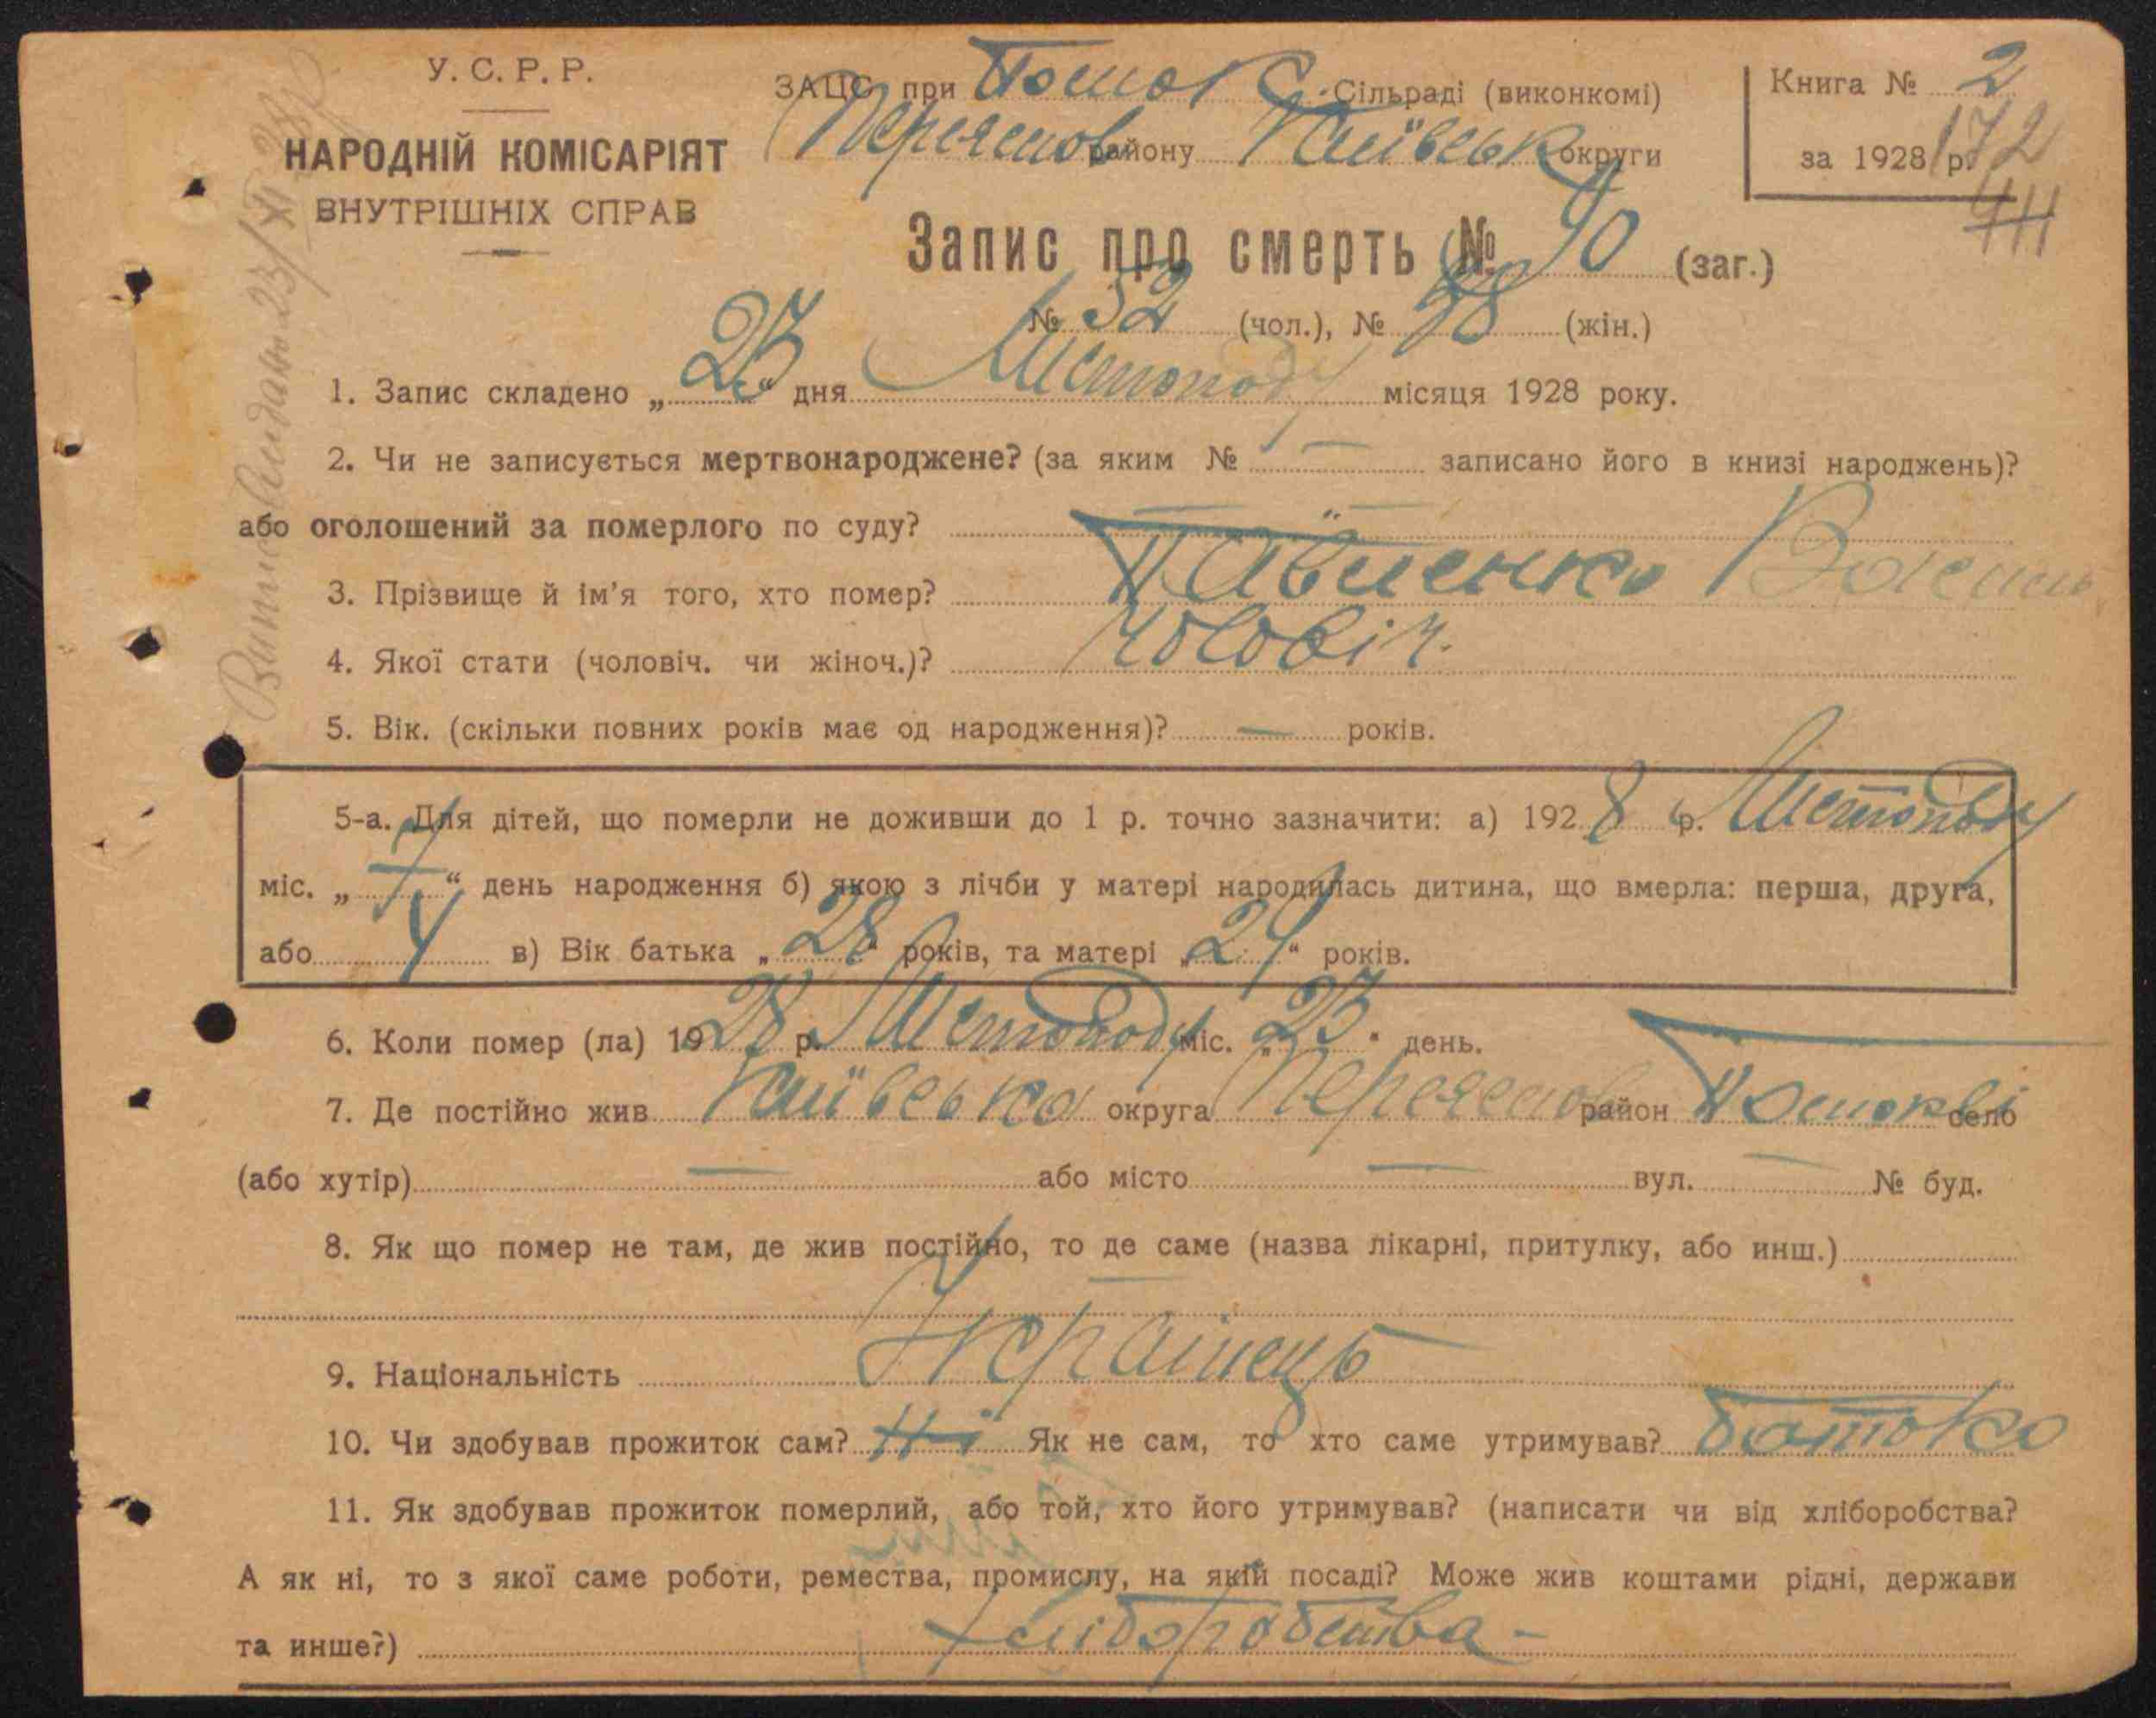 У. С. Р. Р.
НАРОДНІЙ КОМІСАРІЯТ
ВНУТРІШНІХ СПРАВ
ЗАЦС при Сільраді (виконкомі)
району Київськ округи
Книга № 2
за 1928 р. 172
Запис про смерть № 90 (заг.)
№ 52 (чол.), № 38 (жін.)
1. Запис складено „23“ дня Листопаду місяця 1928 року.
2. Чи не записується мертвонароджене? (за яким № — записано його в книзі народжень)?
або оголошений за померлого по суду? —
3. Прізвище й ім'я того, хто помер? Павленко
4. Якої стати (чоловіч. чи жіноч.)? чоловіч.
5. Вік. (скільки повних років має од народження)? — років.
5-а. Для дітей, що померли не доживши до 1 р. точно зазначити: а) 1928 р. Листопаду
міс. „7“ день народження б) якою з лічби у матері народилась дитина, що вмерла: перша, друга,
або 4 в) Вік батька „28“ років, та матері „24“ років.
6. Коли помер (ла) 1928 р. Листопаду міс. „23“ день.
7. Де постійно жив Київська округа район село
(або хутір) — або місто — вул. — № буд.
8. Як що помер не там, де жив постійно, то де саме (назва лікарні, притулку, або инш.)
—
9. Національність Українець
10. Чи здобував прожиток сам? Ні Як не сам, то хто саме утримував? батько
11. Як здобував прожиток померлий, або той, хто його утримував? (написати чи від хліборобства?
А як ні, то з якої саме роботи, ремества, промислу, на якій посаді? Може жив коштами рідні, держави
та инше?) Хліборобства —